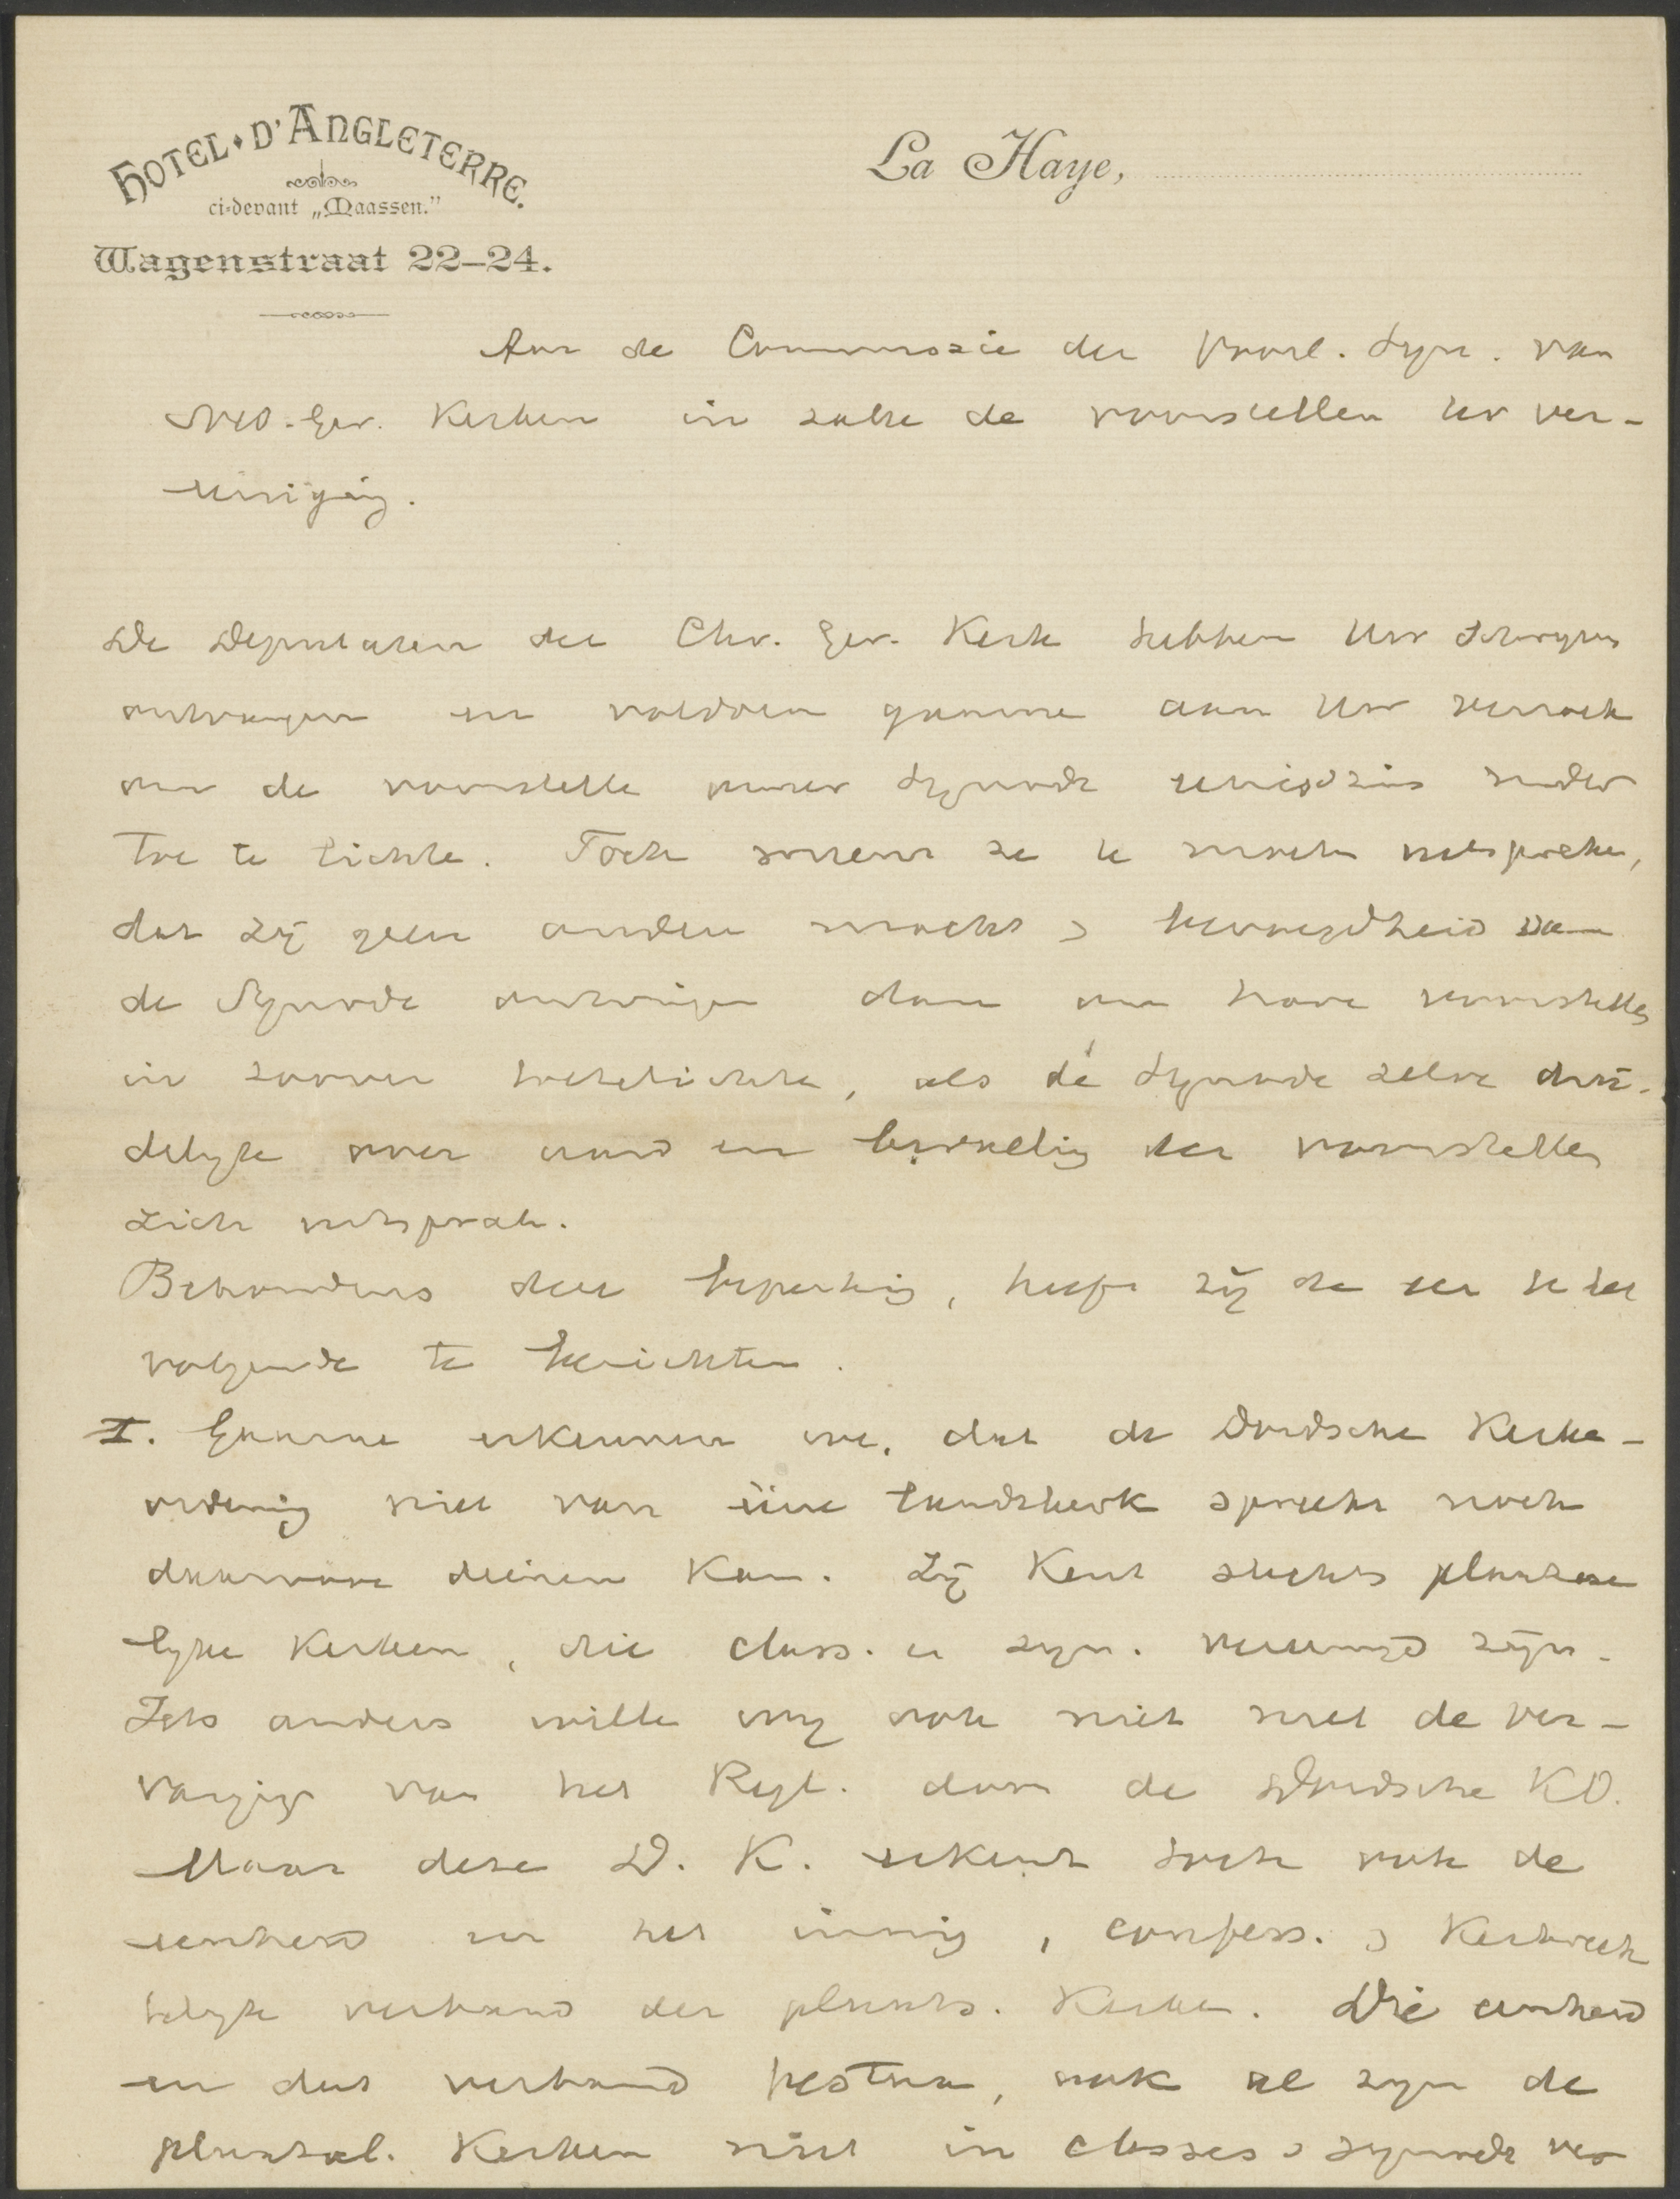 HOTEL D'ANGLETERRE.
ci-devant „Maassen."
Wagenstraat 22–24.
La Haye,
Aan de Commissie der Voorl. Syn. van
Ned. Ger. Kerken in zake de voorstellen ter ver-
eeniging.
De Deputaten der Chr. Ger. Kerk hebben Uw schrijven
ontvangen en voldoen gaarne aan Uw verzoek
om de voorstellen onzer Synode eenigszins nader
toe te lichten. Toch moeten ze uitspreken,
dat zij geen andere macht & bevoegdheid van
de Synode ontvingen dan om hare voorstellen
in zoover toe te lichten, als de Synode zelve dui-
delijk over aard en bedoeling der voorstellen
zich uitsprak.
Behoudens deze beperking, heeft zij de eer U het
volgende te berichten.
I. Gaarne erkennen we, dat de Dordsche Kerke-
ordening niet van eene landskerk spreekt noch
daarvan weten kan. Zij kent slechts plaatse
lijke Kerken, die class. en syn. vereenigd zijn.
Iets anders willen wij ook niet met de ver-
vanging van het Regl. door de Dordsche KO.
Maar deze D. K. erkent toch ook de
eenheid en het innig, confess. & Kerkrech
telijk verband der plaats. Kerken. Die eenheid
en dat verband bestaan, ook al zijn de
plaatsel. Kerken niet in classes & synode ver